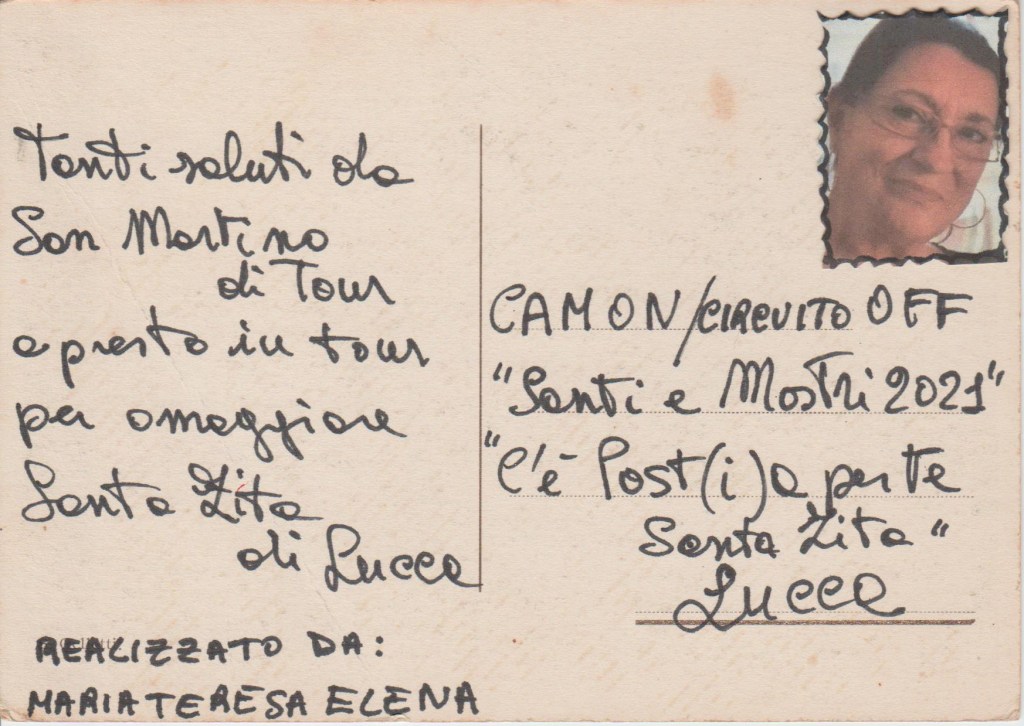 Tanti saluti da
San Martino
di Tour
a presto in tour
per omaggiare
Santa Zita
di Lucca
REALIZZATO DA:
MARIA TERESA ELENA
CAMON/CIRCUITO OFF
"Santi e Mostri 2021"
"C'è Post(i)a per te
Santa Zita"
Lucca